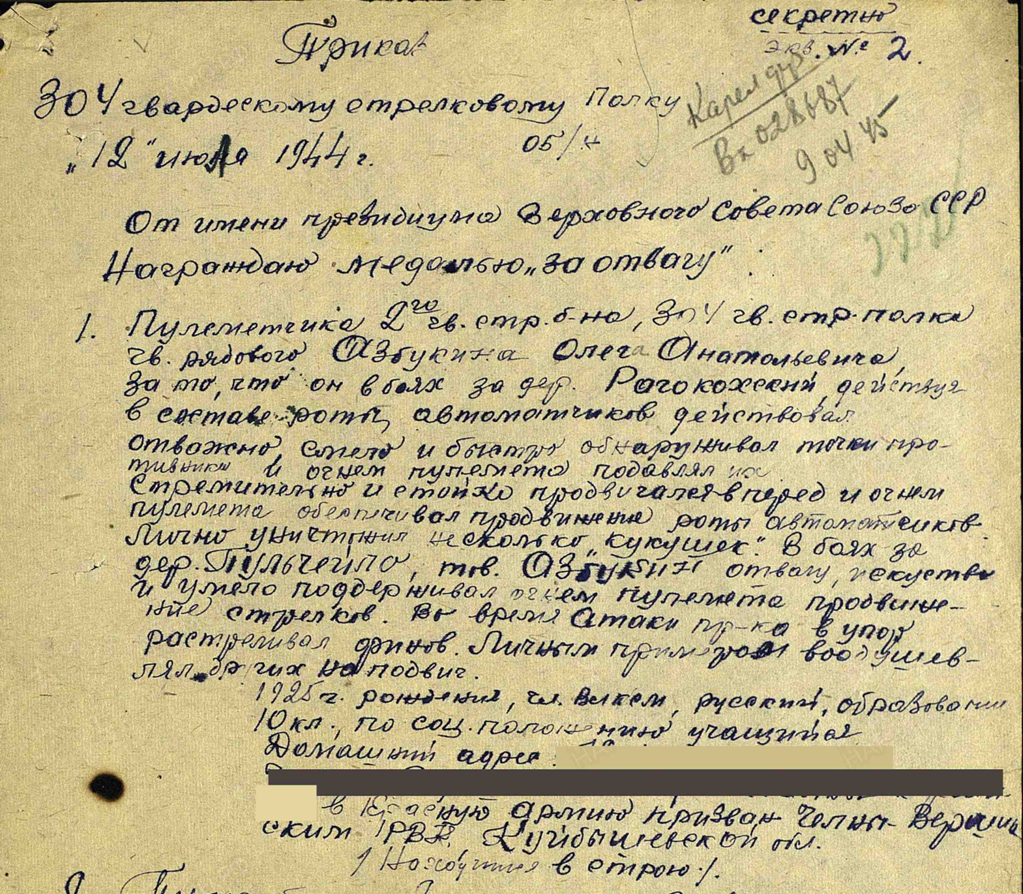 секретно
Приказ
экз. № 2.
304 гвардескому стрелковому Полку
Карел фр
Вх 028687
9 04 45
"12" июля 1944 г. 05/н
От имени президиума Верховного Совета Союза ССР
Награждаю медалью "за отвагу" :
1. Пулеметчика 2го гв. стр. б-на, 304 гв. стр. полка
гв. рядового Азбукина Олега Анатольевича
за то, что он в боях за дер. действуя
в составе роты автоматчиков действовал
отважно, смело и быстро обнаруживал точки про-
тивника и огнем пулемета подавлял их
Стремительно и стойко продвигался вперед и огнем
пулемета обеспечивал продвижение роты автоматчиков.
Лично уничтожил несколько "кукушек". В боях за
дер. Пульчейло, тов. Азбукин отвагу, искуство
и умело поддерживал огнем пулемета продвиже-
ние стрелков. Во время Атаки пр-ка в упор
растреливал финов. Личным примером воодушев-
лял других на подвиг.
1925 г. рождения, чл. влксм, русский, образование
10 кл., по соц. положению учащийся
Домашний адрес
в Красную армию призван Челны-Верши
ским РВК Куйбышевской обл.
/ Находится в строю /.